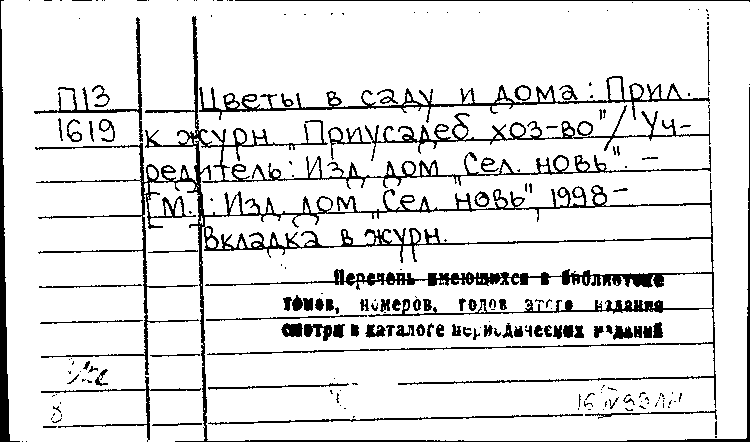 П13 Цветы в саду и дома: Прил.
1619 к журн. „Приусадеб. хоз-во"/ Уч-
редитель: Изд. дом „Сел. новь". –
[М.]: Изд. дом „Сел. новь", 1998–
Вкладка в журн.
Перечень имеющихся в библиотеке
томов, номеров, годов этого издания
смотри в каталоге периодических изданий
8